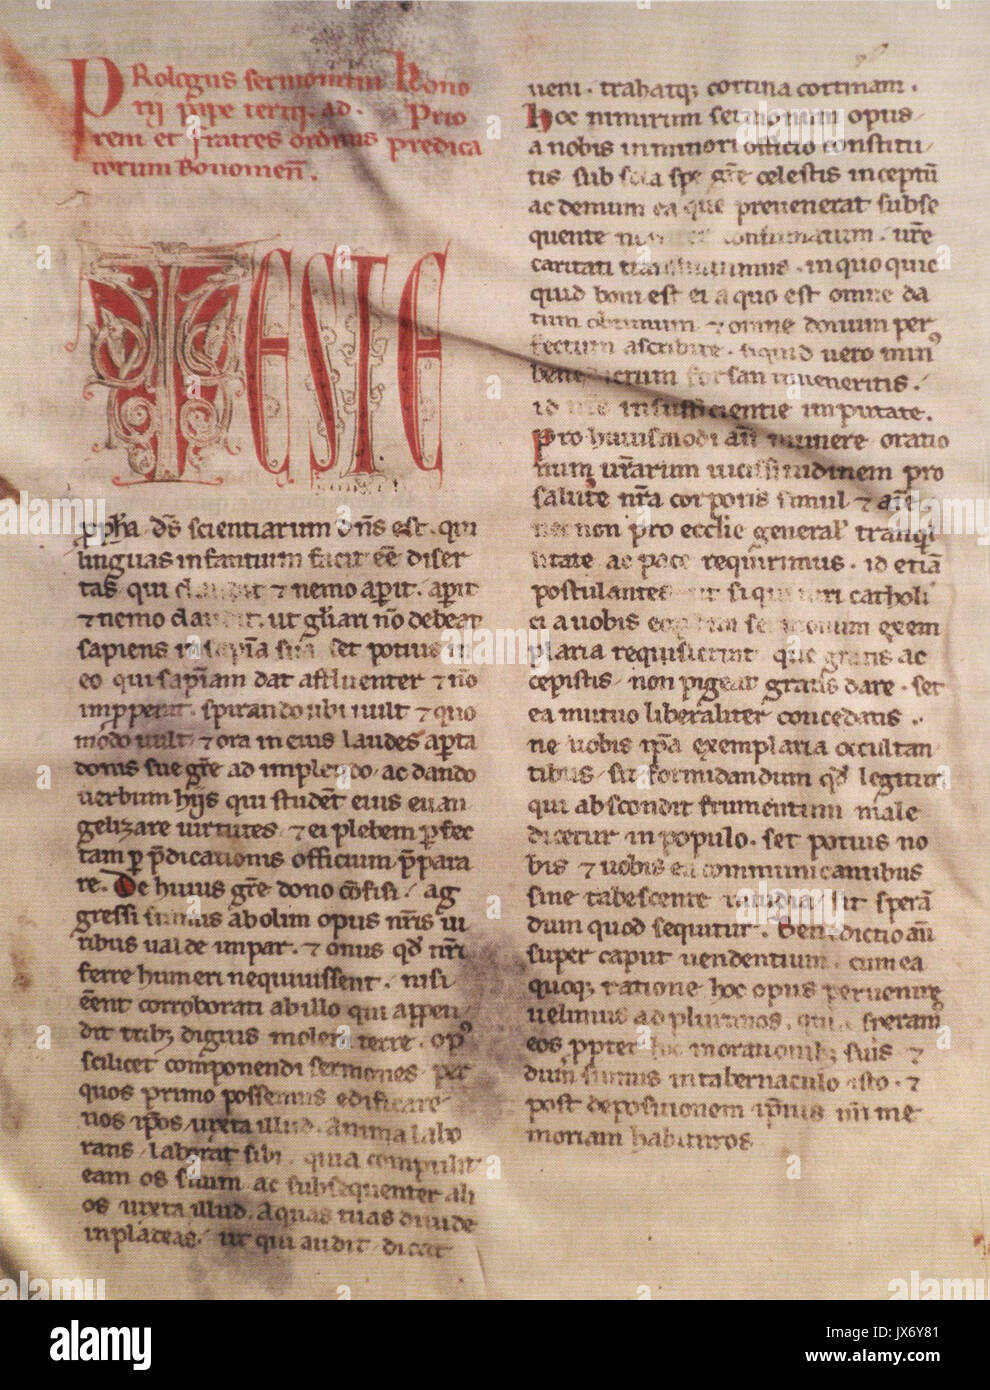 PRologus sermonum Hono
rij pape tertij. ad. Prio
rem et fratres ordinis predica
torum Bononien̄.
TESTE
ꝓpħa. dn̄s scientiarum dn̄s est. qui
linguas infantium facit eē diser
tas qui claudit ⁊ nemo aperit. aperit
⁊ nemo claudit. ut gl̄iari nō debeat
sapiens in sapīa suā set potius in
eo qui sapīam dat affluenter ⁊ nō
imꝓperat. spirando ubi uult ⁊ quo
modo uult ⁊ ora in eius laudes aperta
donis sue gr̄e adimplendo. ac dando
uerbum hijs qui studēt eius euan
gelizare uirtutes ⁊ ei plebem ꝑfec
tam ꝑ p̄dicationis officium p̄para
re. De huius gr̄e dono cōfisi. ag
gressi sumus abolim opus nr̄is ui
ribus ualde impar. ⁊ onus qd̄ nr̄i
ferre humeri nequiuissent. nisi
eēnt corroborati ab illo qui appen
dit tribꝫ digitis molem terre. opꝰ
scilicet componendi sermones per
quos primo possemus edificare
nos ip̄os iuxta illud. Anima labo
rans laborat sibi. quia compulit
eam os suum ac subsequenter ali
os iuxta illud. Aquas tuas diuide
in plateas. ut qui audit dicat
ueni. trahatqꝫ cortina cortinam.
Hoc nimirum sermonum opus
a nobis in minori officio constitu
tis sub sc̄ta spe gr̄e celestis inceptū
ac demum ea que preuenerat subse
quente confirmatum. ur̄e
caritati transmittimus. in quo quic
quid boni est ei a quo est omne da
tum optimum ⁊ omne donum per
fectum ascribite. siquid uero minꝰ
forsan inueneritis.
id insufficientie imputate.
Pro huiusmodi aūt munere oratio
num ur̄arum uicissitudinem pro
salute nr̄a corporis simul ⁊ aīe
nec non pro ecclie general' tranqil
litate ac pace requirimus. id etiā
postulantes ut si qui uiri catholi
ci a uobis sermonum exem
plaria requisierint que gratis ac
cepistis. non pigeat gratis dare. set
ea mutuo liberaliter concedatis.
ne uobis ip̄a exemplaria occultan
tibus. sit formidandum qd̄ legitur.
qui abscondit frumentum male
dicetur in populo. set potius no
bis ⁊ uobis ea communicantibus
sine tabescente inuidia. sit sperā
dum quod sequitur. Benedictio aūt
super caput uendentium. cum ea
quoqꝫ ratione hoc opus peruenire
uelimus ad plurimos. quia speramꝰ
eos ꝓpter hoc in orationibꝫ suis ⁊
dum sumus in tabernaculo isto. ⁊
post depositionem ip̄ius nr̄i me
moriam habituros
alamy
Image ID: JX6Y81
www.alamy.com